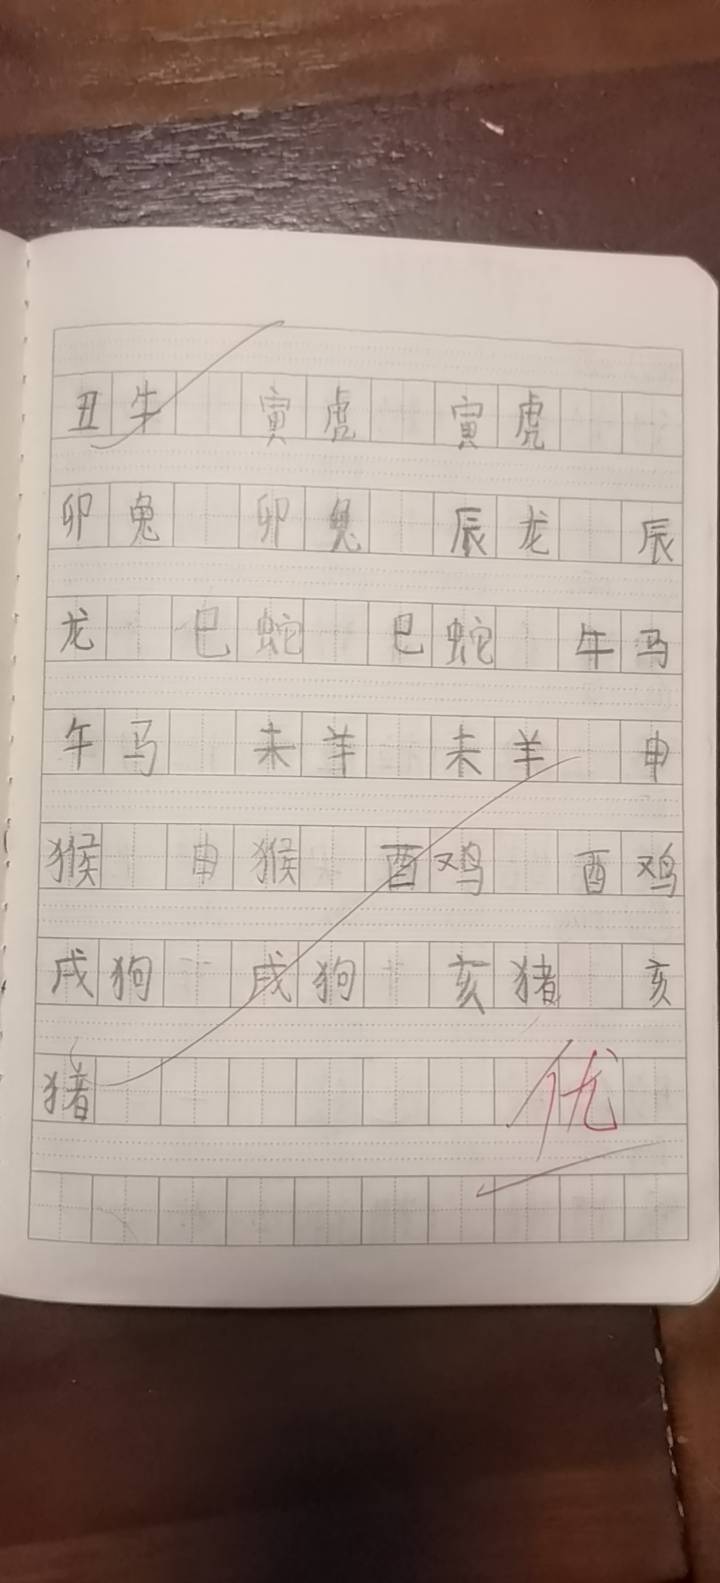 丑牛 寅虎 寅虎
卯兔 卯兔 辰龙 辰
龙 巳蛇 巳蛇 牛马
午马 未羊 未羊 申
猴 申猴 酉鸡 酉鸡
戌狗 戌狗 亥猪 亥
猪
优